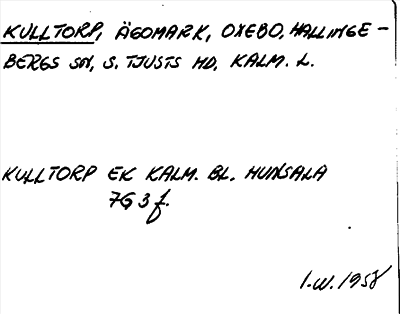 KULLTORP, ÄGOMARK, OXEBO, HALLINGE-
BERGS SN, S. TJUSTS HD, KALM. L.
KULLTORP EK KALM. BL. HUNSALA
7G 3 f.
I.W. 1958